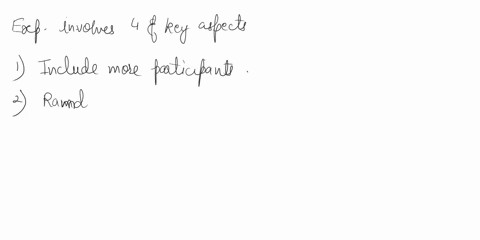 Exp. involves 4 of key aspects
1) Include more participants.
2) Ramd